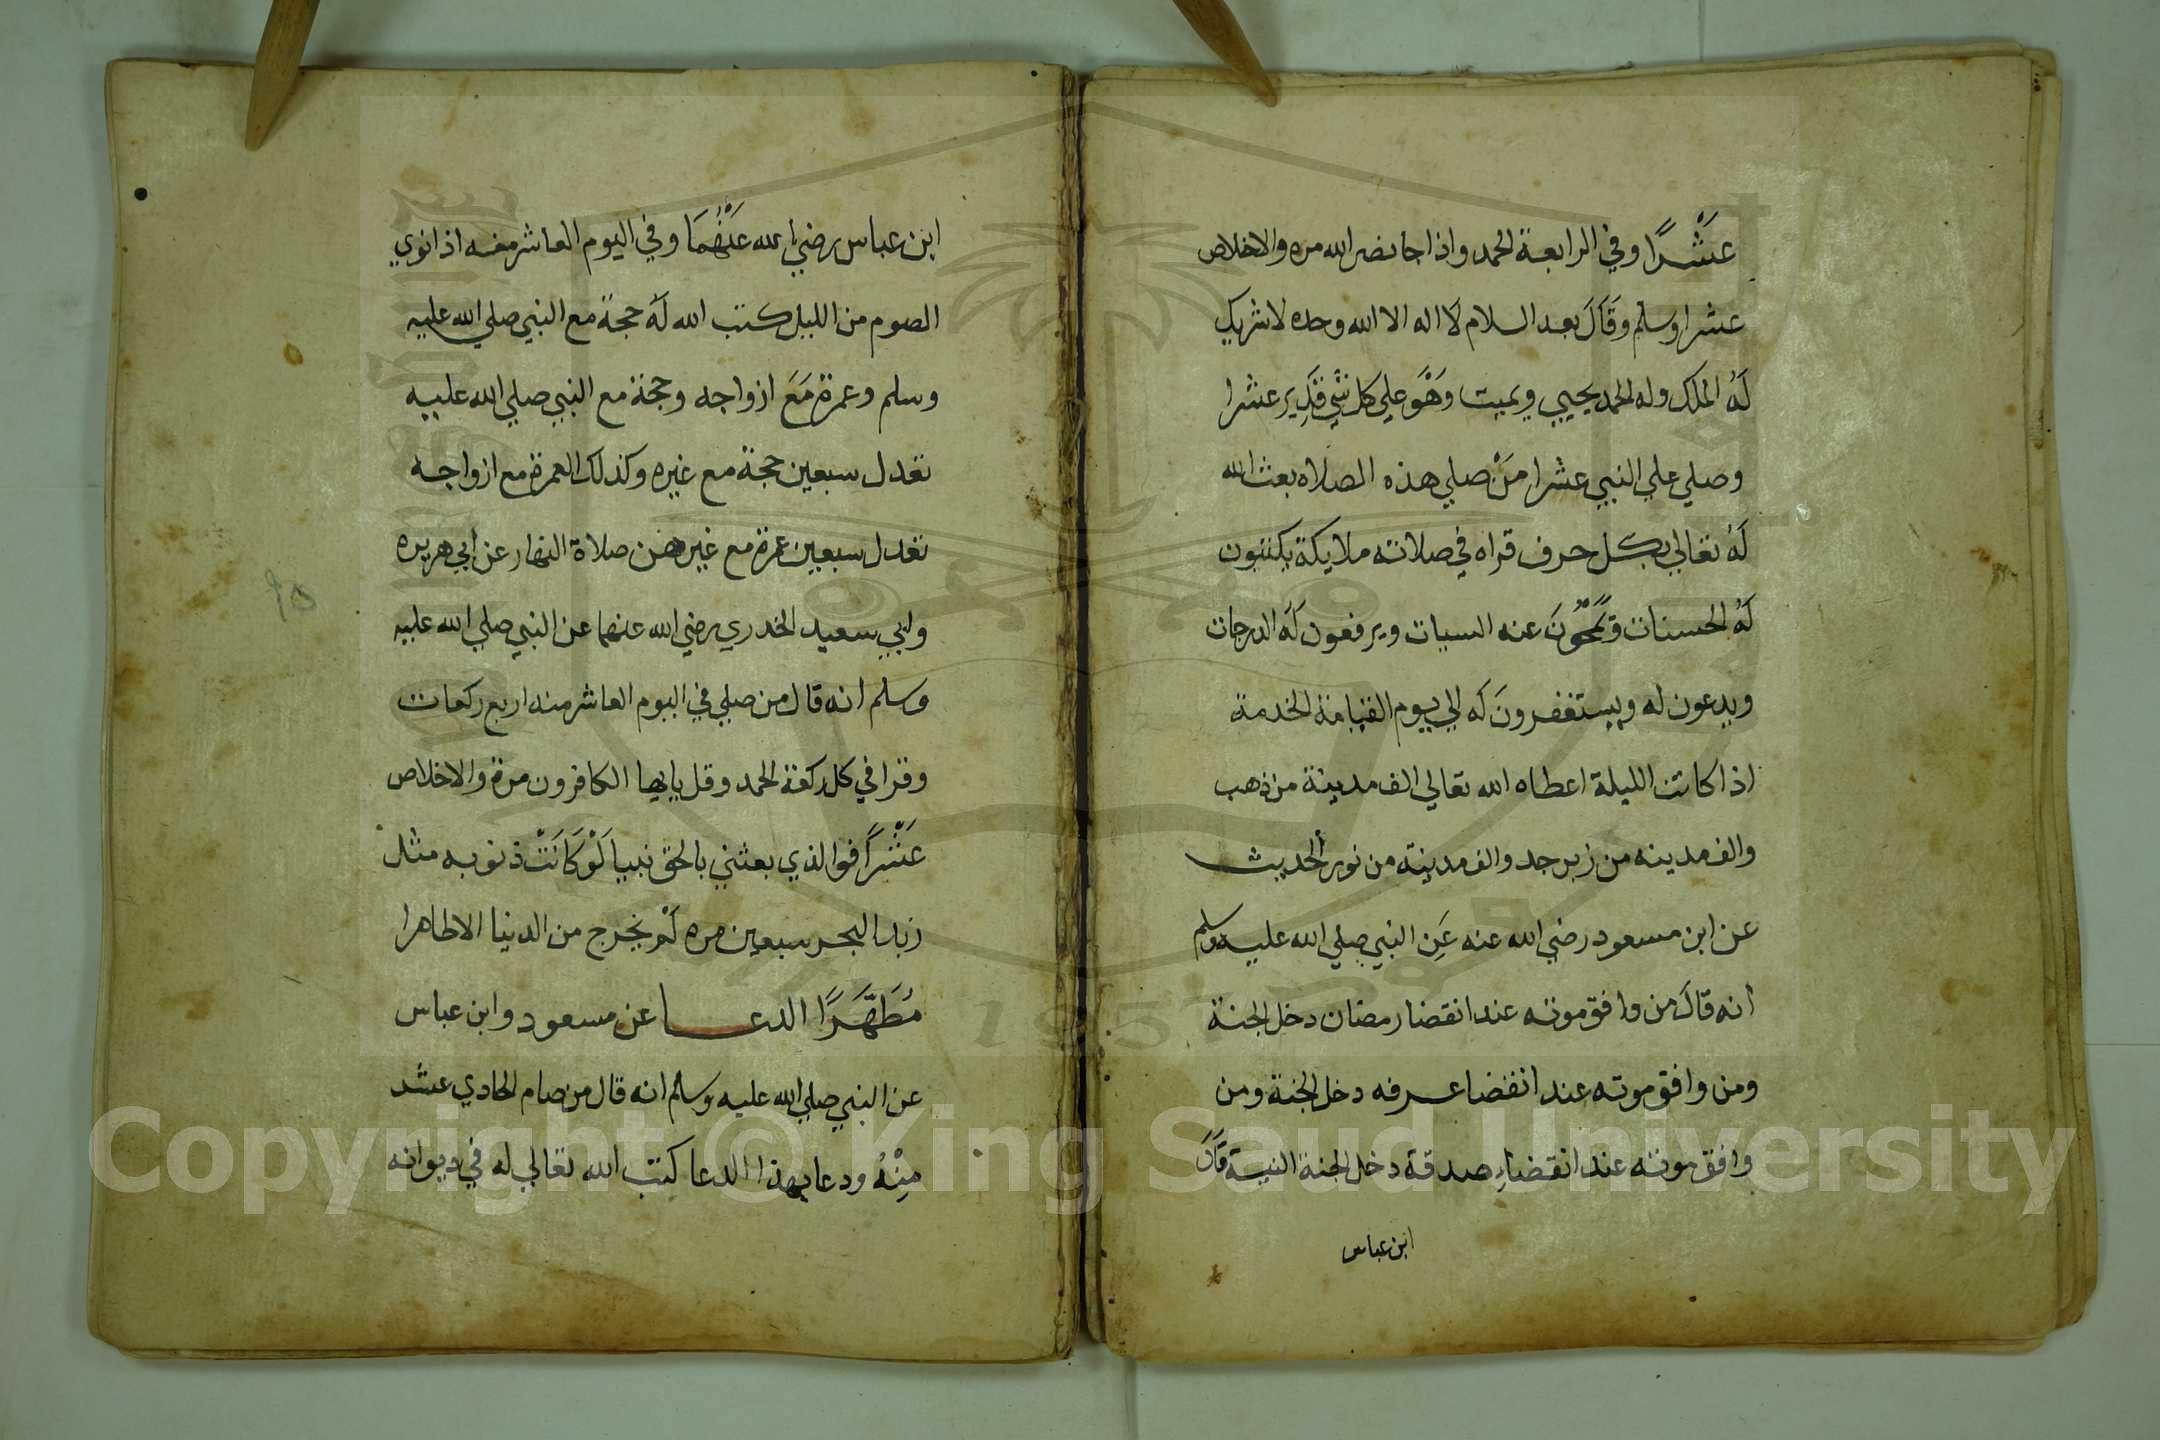 عَشْرًا وفي الرابعة الحمد واذا جا نصر الله مره والاخلاص
عشرا وسلم وَقَالَ بعد السلام لَا اله الا الله وحده لا شريك
لَهُ الملك وله الحمد يحيي ويميت وَهُوَ علي كل شي قَدِير عشرا
وصلي علي النبي عشرا مَنْ صلي هذه الصلاه بعث الله
لَهُ تعالي بكل حرف قراه في صلاته ملايكة يكتبون
لَهُ الحسنات وَيَمْحُونَ عنه السيات ويرفعون لَهُ الدرجات
ويدعون له ويستغفرونَ لَه الي يوم القيامة الخدمة
اذا كانت الليلة اعطاه الله تعالي الف مدينة من ذهب
والف مدينه من زبرجد والف مدينة من نور الحديث
عن ابن مسعود رضي الله عنه عَنِ النبي صلي الله عليه وسلم
انه قالَ من وافق موته عند انقضا رمضان دخل الجنة
ومن وافق موته عند انقضا عرفه دخل الجنة ومن
وافق موته عند انقضاءِ صدقة دخل الجنة النية قَالَ
ابن عباس
ابن عباس رضي الله عَنْهُمَا وفي اليوم العاشر منه اذا نوي
الصوم من الليل كتب الله لَهُ حجة مع النبي صلي الله عليه
وسلم وعمرة مَعَ ازواجه وحجة مع النبي صلي الله عليه
تعدل سبعين حجة مع غيره وكذلك العمرة مع ازواجه
تعدل سبعين عمرة مع غيرهن صلاة النهار عن ابي هريره
وابي سعيد الخدري رضي الله عنهما عن النبي صلي الله عليه
وسلم انه قال من صلي في اليوم العاشر منه اربع ركعات
وقرا في كل ركعة الحمد وقل يايها الكافرون مرة والاخلاص
عَشْرًا فوالذي بعثني بالحق نبيا لَوْ كَانَتْ ذنوبه مثل
زبد البحر سبعين مره لَمْ يخرج من الدنيا الا طاهرا
مُطَهَّرًا الدعا عن مسعود وابن عباس
عن النبي صلي الله عليه وسلم انه قال من صام الحادي عشر
مِنْهُ ودعا بهذا الدعا كتب الله تعالي له في ديوانه
٩٥
Copyright © King Saud University
1957